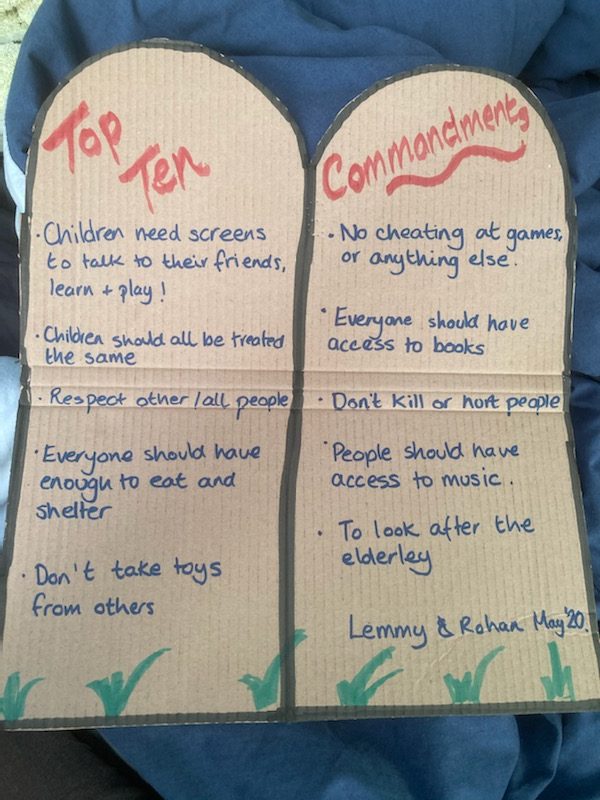 Top
Ten
· Children need screens
to talk to their friends,
learn + play!
· Children should all be treated
the same
· Respect other/all people
· Everyone should have
enough to eat and
shelter
· Don't take toys
from others
Commandments
· No cheating at games,
or anything else.
· Everyone should have
access to books
· Don't kill or hurt people
· People should have
access to music.
· To look after the
elderley
Lemmy & Rohan May '20.